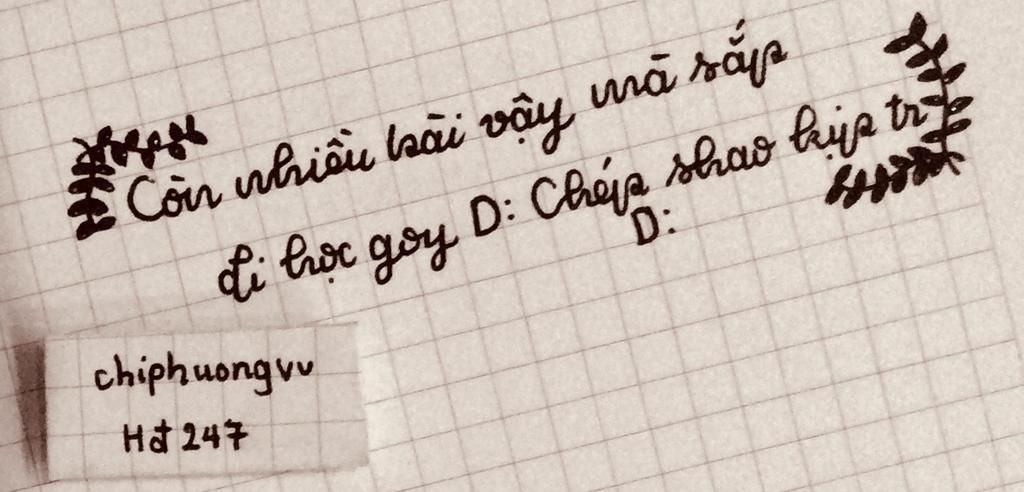 Còn nhiều bài vậy mà sắp
đi học goy D: Chép shao kịp tr
D:
chiphuongvu
Hđt 247